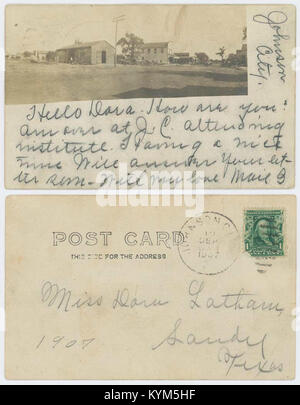 Johnson
City.
Hello Dora. How are you.
am over at J.C. attending
institute. Having a nice
time Will answer your let-
ter soon- Will now love
POST CARD
THIS SIDE FOR THE ADDRESS
JOHNSON CITY
SEP
1907
Miss Dora Latham,
1907
Sandy
Texas
alamy
Image ID: KYM5HF
www.alamy.com